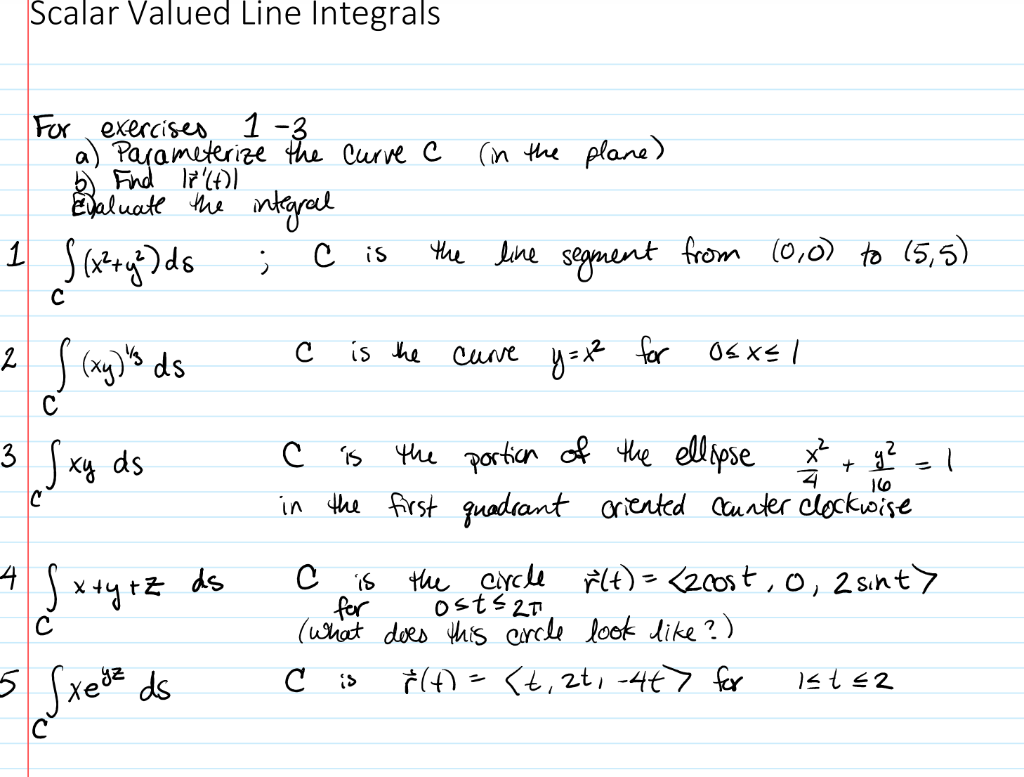 Scalar Valued Line Integrals
For exercises 1-3
a) Parameterize the curve C (in the plane)
b) Find |r⃗'(t)|
Evaluate the integral
1 ∫_C (x²+y²) ds ; C is the line segment from (0,0) to (5,5)
2 ∫_C (xy)^{1/3} ds C is the curve y=x² for 0≤x≤1
3 ∫_C xy ds C is the portion of the ellipse x²/4 + y²/16 = 1
in the first quadrant oriented counter clockwise
4 ∫_C x+y+z ds C is the circle r⃗(t) = <2cost, 0, 2sint>
for 0≤t≤2π
(what does this circle look like?)
5 ∫_C xe^{yz} ds C is r⃗(t) = <t, 2t, -4t> for 1≤t≤2